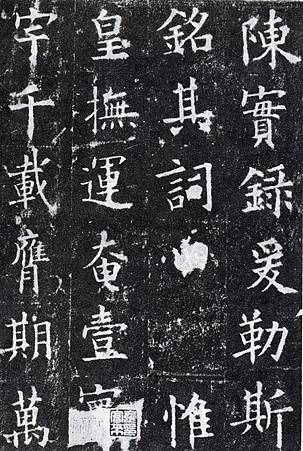 陳實録爰勒斯
銘其詞惟
皇撫運奄壹寰
宇千載膺期萬